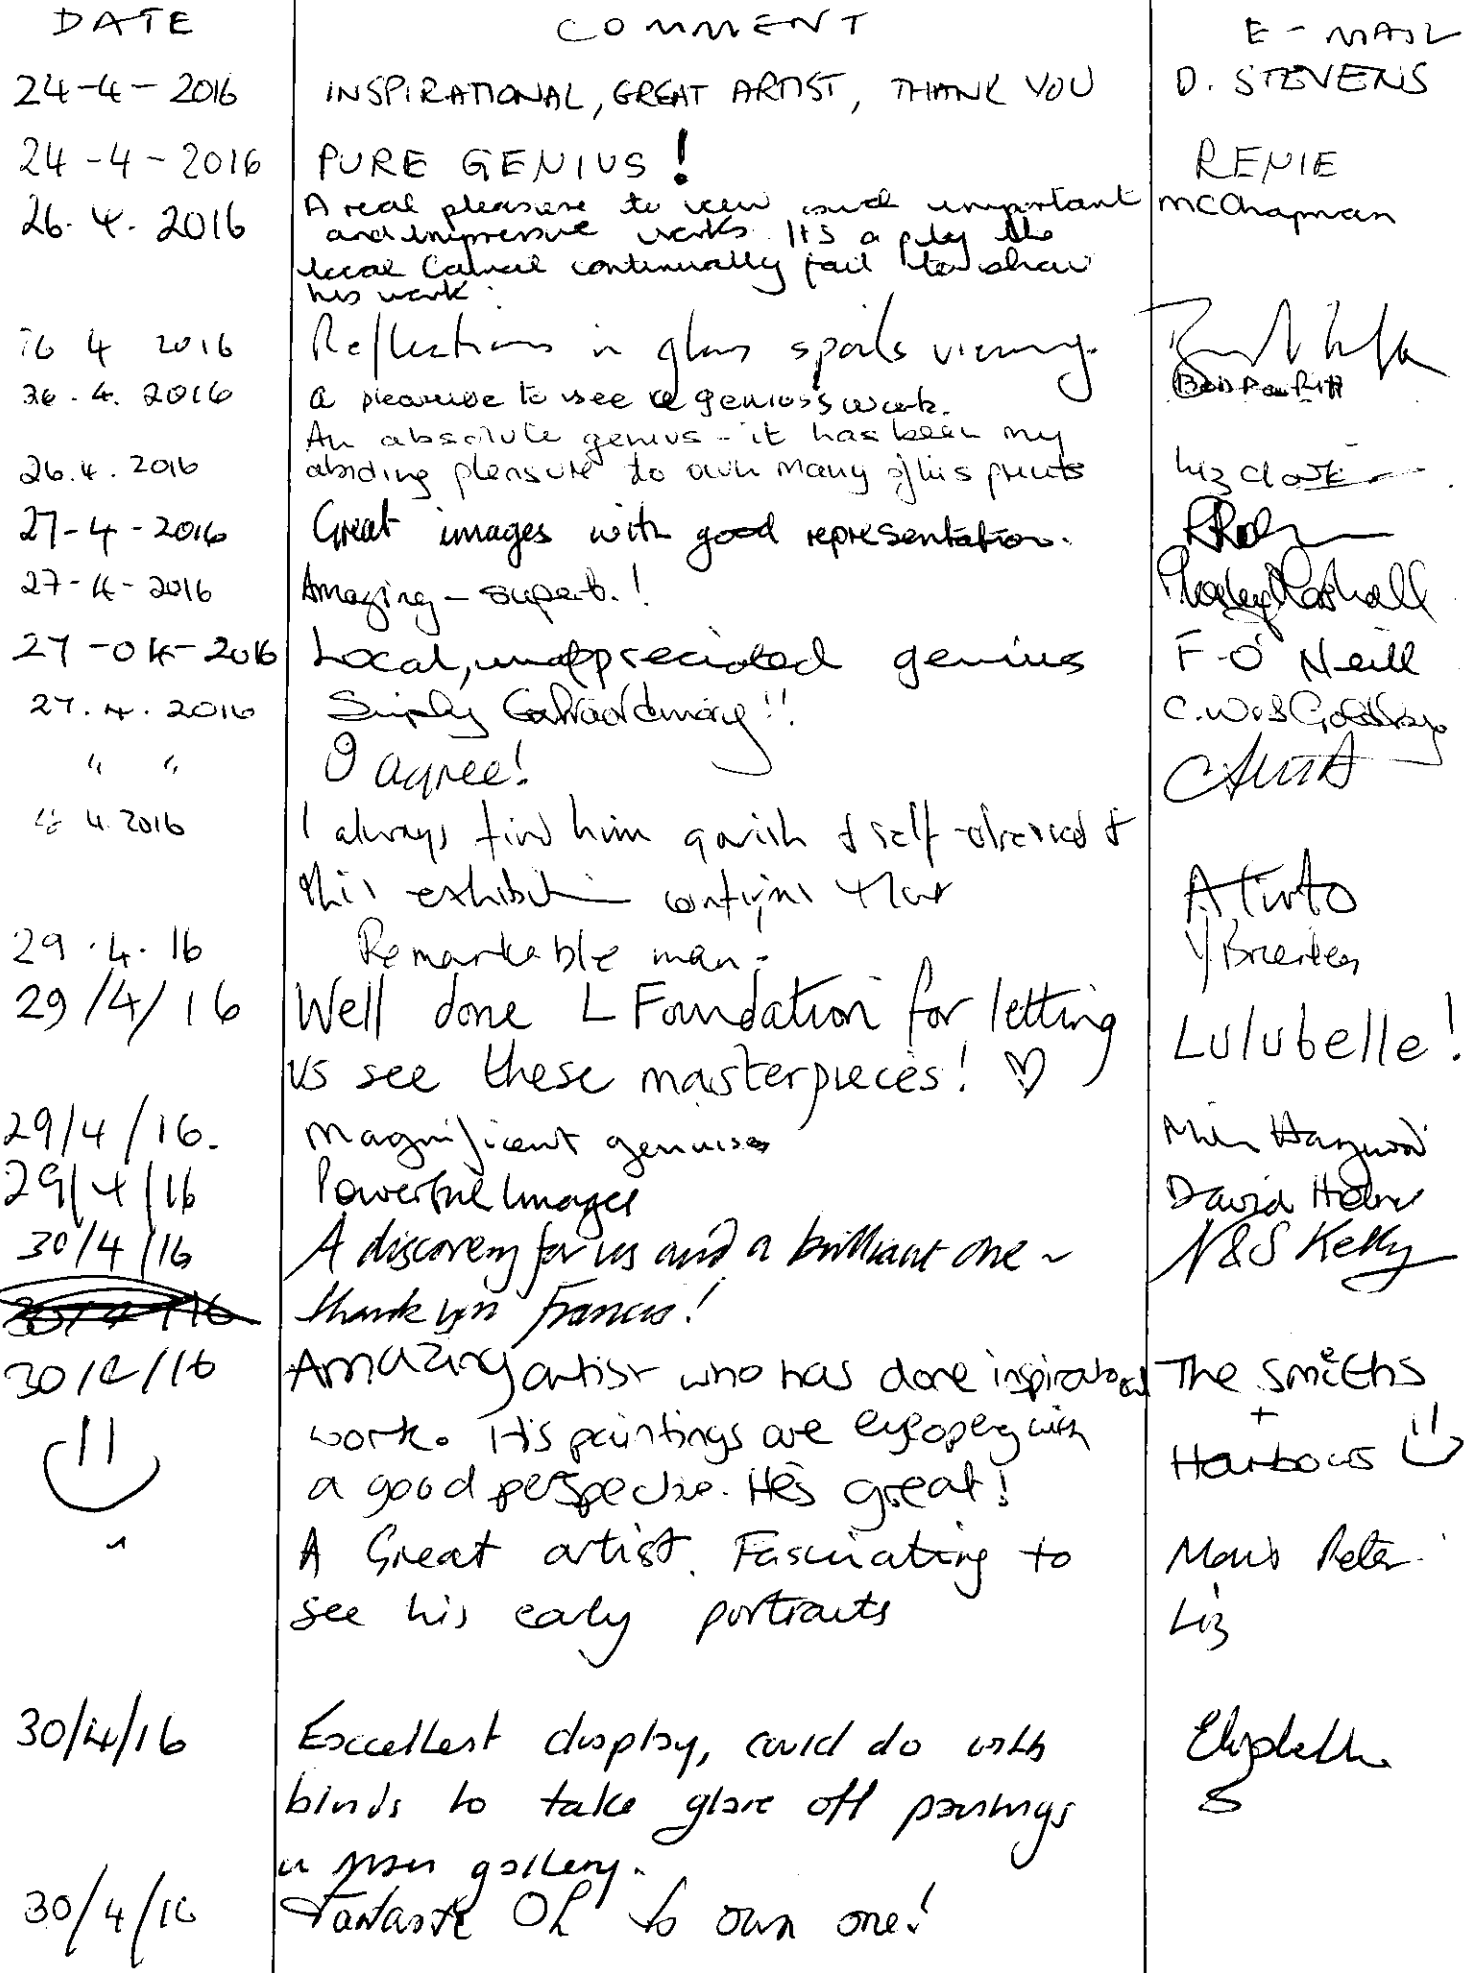 DATE COMMENT E-MAIL
24-4-2016 INSPIRATIONAL, GREAT ARTIST, THANK YOU D. STEVENS
24-4-2016 PURE GENIUS! RENIE
26.4.2016 A real pleasure to view such important McChapman
and impressive works. It's a pity the
local Council continually fail to show
his work.
4 2016 Reflections in glass spoils viewing.
26.4.2016 a pleasure to see a genius's work.
An absolute genius - it has been my
26.4.2016 abiding pleasure to own many of his prints Liz Clarke
27-4-2016 Great images with good representation.
27-4-2016 Amazing - superb.! Marshall
27-04-2016 Local, unappreciated genius F-O'Neill
27.4.2016 Simply Extraordinary!! C.W.
" " I agree!
4 2016 I always find him garish & self-obsessed &
this exhibition confirms that
29.4.16 Remarkable man. Y Brierley
29/4/16 Well done L Foundation for letting Lulubelle!
us see these masterpieces! ♡
29/4/16. Magnificent genius
29/4/16 Powerful Images David
30/4/16 A discovery for us and a brilliant one ~ N&S Kelly
30/4/16 thank you Francis!
30/4/16 Amazing artist who has done inspirational The Smiths
work. His paintings are eyeopeng with + Harbours
a good perspective. He's great!
" A Great artist. Fascinating to Peter
see his early portraits Liz
30/4/16 Excellent display, could do with Elizabeth
blinds to take glare off paintings S
in main gallery.
30/4/16 Fantastic Oh to own one!